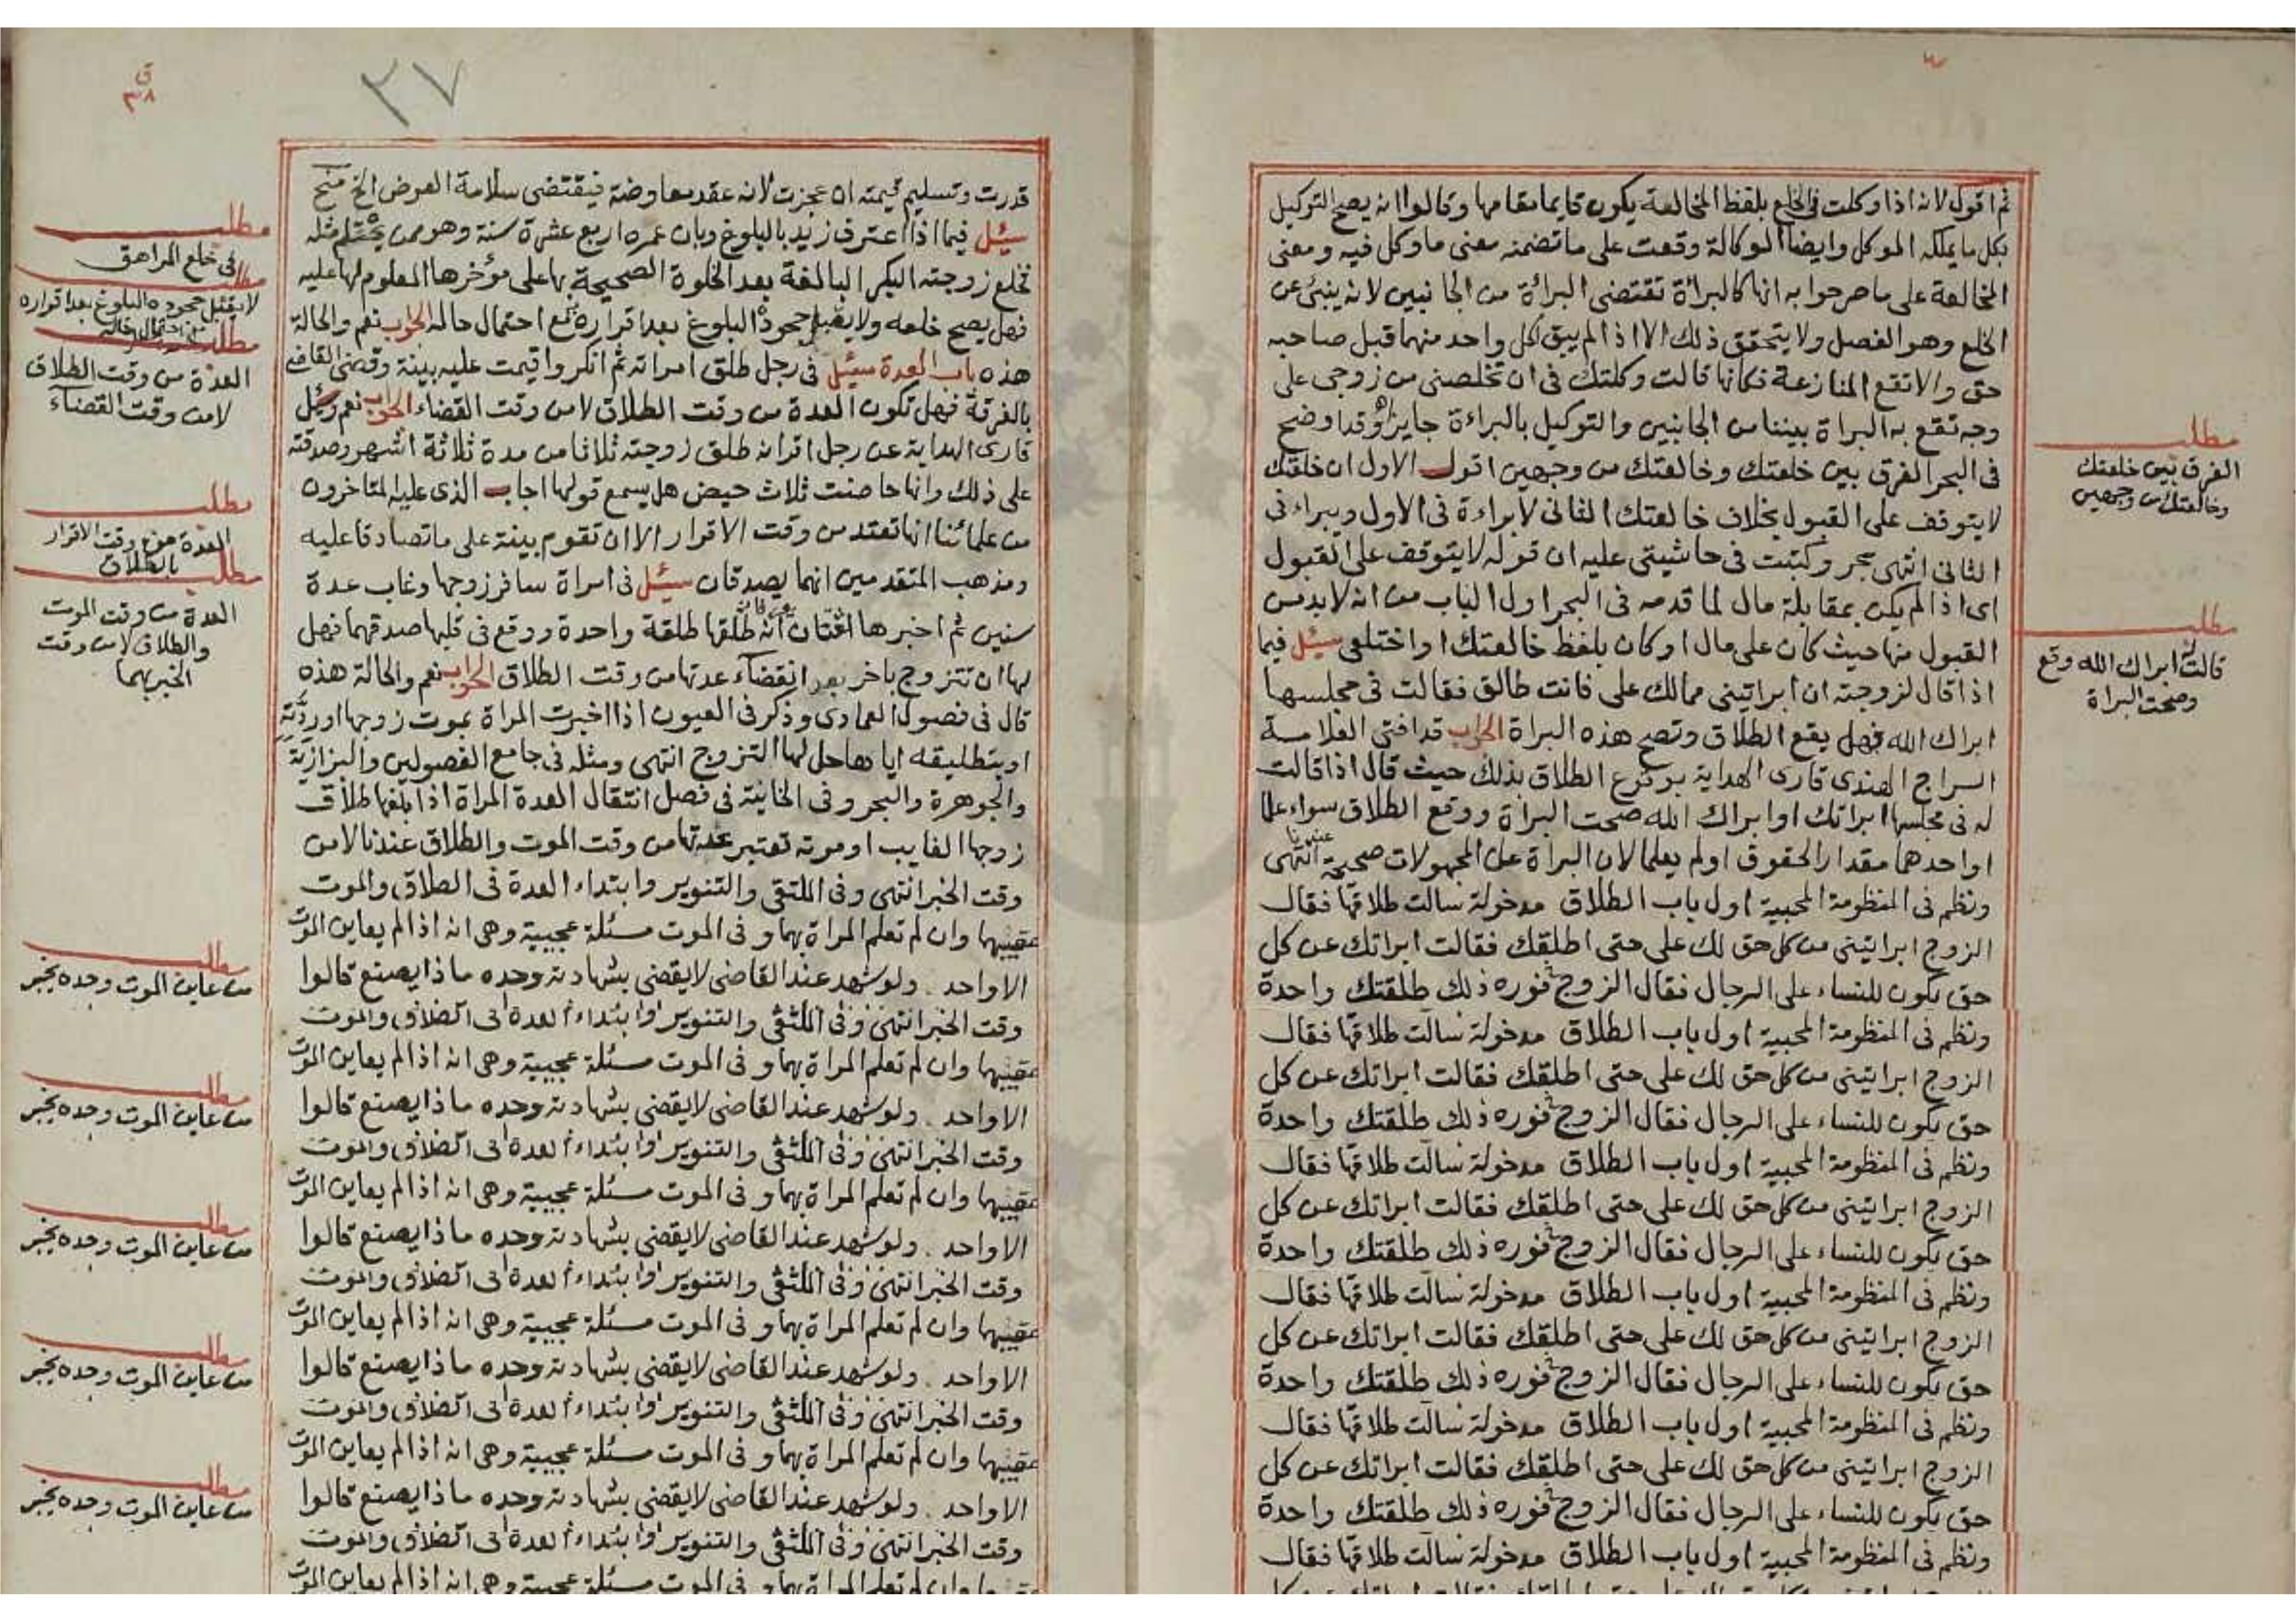 ثم اقول لانه اذا وكلت في الخلع بلفظ المخالعة يكون قايما مقامها وقالوا انه يصح التوكيل
بكل ما يملكه الموكل وايضا الوكالة وقعت على ما تضمنه معنى ما وكل فيه ومعنى
المخالعة على ما صرحوا به انها كالبراة تقتضى البرائة من الجانبين لانه ينبئ عن
الخلع وهو الفصل ولا يتحقق ذلك الا اذا لم يبق لكل واحد منهما قبل صاحبه
حق والا تقع المنازعة فكانها قالت وكلتك فى ان تخلصنى من زوجى على
وجه تقع به البراة بيننا من الجانبين والتوكيل بالبراءة جايز وقد اوضح
فى البحر الفرق بين خلعتك وخالعتك من وجهين اقول الاول ان خلعتك
لا يتوقف على القبول بخلاف خالعتك الثانى لا براءة فى الاول ويبراء فى
الثانى انتهى بحر وكتبت فى حاشيتى عليه ان قوله لا يتوقف على القبول
اى اذا لم يكن بمقابلة مال لما قدمه فى البحر اول الباب من انه لا بد من
القبول منها حيث كان على مال او كان بلفظ خالعتك او اختلعى سئل فيما
اذا قال لزوجته ان ابراتينى ممالك على فانت طالق فقالت فى مجلسها
ابراك الله فهل يقع الطلاق وتصح هذه البراة الجواب قد افتى العلامة
السراج الهندى قارى الهداية بوقوع الطلاق بذلك حيث قال اذا قالت
له فى مجلسها ابراتك او ابراك الله صحت البراة ووقع الطلاق سواء علما
او احدهما مقدار الحقوق او لم يعلما لان البراة عن المجهولات صحيحة عندنا انتهى
ونظم فى المنظومة المحبية اول باب الطلاق مدخولة سالت طلاقها فقال
الزوج ابراتينى من كل حق لك على حتى اطلقك فقالت ابراتك عن كل
حق يكون للنساء على الرجال فقال الزوج فى فوره ذلك طلقتك واحدة
ونظم فى المنظومة المحبية اول باب الطلاق مدخولة سالت طلاقها فقال
الزوج ابراتينى من كل حق لك على حتى اطلقك فقالت ابراتك عن كل
حق يكون للنساء على الرجال فقال الزوج فى فوره ذلك طلقتك واحدة
ونظم فى المنظومة المحبية اول باب الطلاق مدخولة سالت طلاقها فقال
الزوج ابراتينى من كل حق لك على حتى اطلقك فقالت ابراتك عن كل
حق يكون للنساء على الرجال فقال الزوج فى فوره ذلك طلقتك واحدة
ونظم فى المنظومة المحبية اول باب الطلاق مدخولة سالت طلاقها فقال
الزوج ابراتينى من كل حق لك على حتى اطلقك فقالت ابراتك عن كل
حق يكون للنساء على الرجال فقال الزوج فى فوره ذلك طلقتك واحدة
ونظم فى المنظومة المحبية اول باب الطلاق مدخولة سالت طلاقها فقال
الزوج ابراتينى من كل حق لك على حتى اطلقك فقالت ابراتك عن كل
حق يكون للنساء على الرجال فقال الزوج فى فوره ذلك طلقتك واحدة
ونظم فى المنظومة المحبية اول باب الطلاق مدخولة سالت طلاقها فقال
مطلب
الفرق بين خلعتك
وخالعتك من وجهين
مطلب
قالت له ابراك الله وقع
وصحت البراة
٣٧
ق
٣٨
قدرت وتسليم قيمته ان عجزت لانه عقد معاوضة فيقتضى سلامة العوض الخ منح
سئل فيما اذا اعترف زيد بالبلوغ وبان عمره اربع عشرة سنة وهو ممن يحتلم مثله
فخلع زوجته البكر البالغة بعد الخلوة الصحيحة بها على مؤخرها المعلوم لها عليه
فهل يصح خلعه ولا يقبل جحوده البلوغ بعد اقراره مع احتمال حاله الجواب نعم والحالة
هذه باب العدة سئل فى رجل طلق امراته ثم انكر واقيمت عليه بينة وقضى القاضى
بالفرقة فهل تكون العدة من وقت الطلاق لا من وقت القضاء الجواب نعم سئل
قارى الهداية عن رجل اقر انه طلق زوجته ثلاثا من مدة ثلاثة اشهر وصدقته
على ذلك وانها حاضت ثلاث حيض هل يسمع قولها اجاب الذى عليه المتاخرون
من علمائنا انها تعتد من وقت الاقرار الا ان تقوم بينة على ما تصادقا عليه
ومذهب المتقدمين انهما يصدقان سئل فى امراة سافر زوجها وغاب عدة
سنين ثم اخبرها انه طلقها طلقة واحدة ووقع فى قلبها صدقهما فهل
لها ان تتزوج باخر بعد انقضاء عدتها من وقت الطلاق الجواب نعم والحالة هذه
قال فى فصول العمادى وذكر فى العيون اذا اخبرت المراة بموت زوجها او ردته
او بتطليقه اياها حل لها التزوج انتهى ومثله فى جامع الفصولين والبزازية
والجوهرة والبحر وفى الخانية فى فصل انتقال العدة المراة اذا بلغها طلاق
زوجها الغايب او موته تعتبر عدتها من وقت الموت والطلاق عندنا لا من
وقت الخبر انتهى وفى الملتقى والتنوير وابتداء العدة فى الطلاق والموت
عقيبهما وان لم تعلم المراة بهما وفى الموت مسئلة عجيبة وهى انه اذا لم يعاين الموت
الا واحد ولو شهد عند القاضى لا يقضى بشهادته وحده ماذا يصنع قالوا
وقت الخبر انتهى وفى الملتقى والتنوير وابتداء العدة فى الطلاق والموت
عقيبهما وان لم تعلم المراة بهما وفى الموت مسئلة عجيبة وهى انه اذا لم يعاين الموت
الا واحد ولو شهد عند القاضى لا يقضى بشهادته وحده ماذا يصنع قالوا
وقت الخبر انتهى وفى الملتقى والتنوير وابتداء العدة فى الطلاق والموت
عقيبهما وان لم تعلم المراة بهما وفى الموت مسئلة عجيبة وهى انه اذا لم يعاين الموت
الا واحد ولو شهد عند القاضى لا يقضى بشهادته وحده ماذا يصنع قالوا
وقت الخبر انتهى وفى الملتقى والتنوير وابتداء العدة فى الطلاق والموت
عقيبهما وان لم تعلم المراة بهما وفى الموت مسئلة عجيبة وهى انه اذا لم يعاين الموت
الا واحد ولو شهد عند القاضى لا يقضى بشهادته وحده ماذا يصنع قالوا
وقت الخبر انتهى وفى الملتقى والتنوير وابتداء العدة فى الطلاق والموت
عقيبهما وان لم تعلم المراة بهما وفى الموت مسئلة عجيبة وهى انه اذا لم يعاين الموت
الا واحد ولو شهد عند القاضى لا يقضى بشهادته وحده ماذا يصنع قالوا
وقت الخبر انتهى وفى الملتقى والتنوير وابتداء العدة فى الطلاق والموت
عقيبهما وان لم تعلم المراة بهما وفى الموت مسئلة عجيبة وهى انه اذا لم يعاين الموت
مطلب
فى خلع المراهق
مطلب
لا يقبل جحوده البلوغ بعد اقراره
مع احتمال حاله
مطلب
العدة من وقت الطلاق
لا من وقت القضاء
مطلب
العدة من وقت الاقرار
بالطلاق
مطلب
العدة من وقت الموت
والطلاق لا من وقت
الخبر بهما
مطلب
من عاين الموت وحده يخبر
مطلب
من عاين الموت وحده يخبر
مطلب
من عاين الموت وحده يخبر
مطلب
من عاين الموت وحده يخبر
مطلب
من عاين الموت وحده يخبر